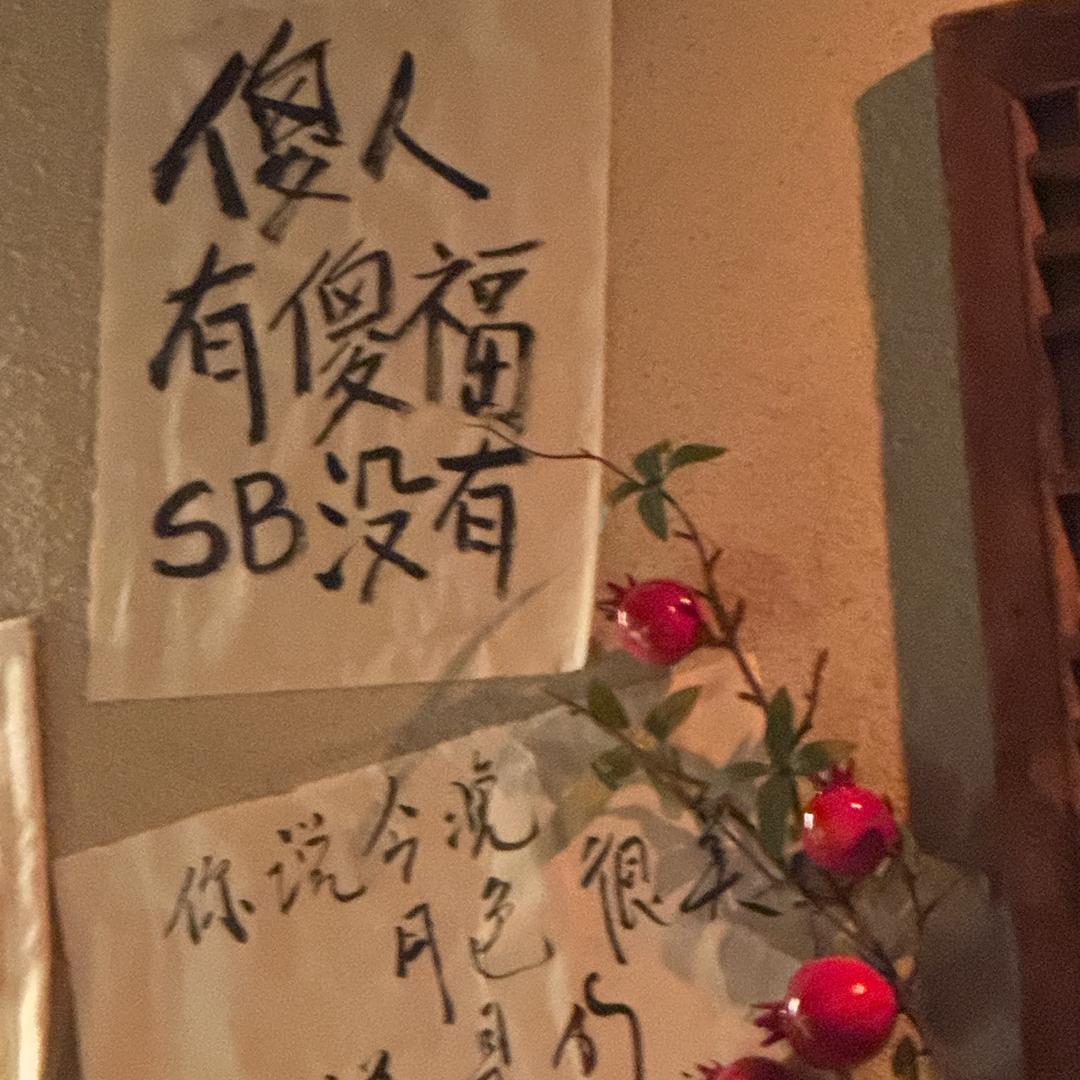 傻人
有傻福
SB没有
你说今晚
月色很美